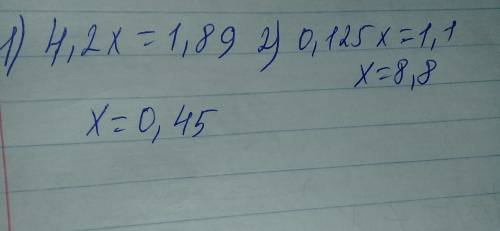 1) 4,2x=1,89 2) 0,125x=1,1
x=8,8
x=0,45